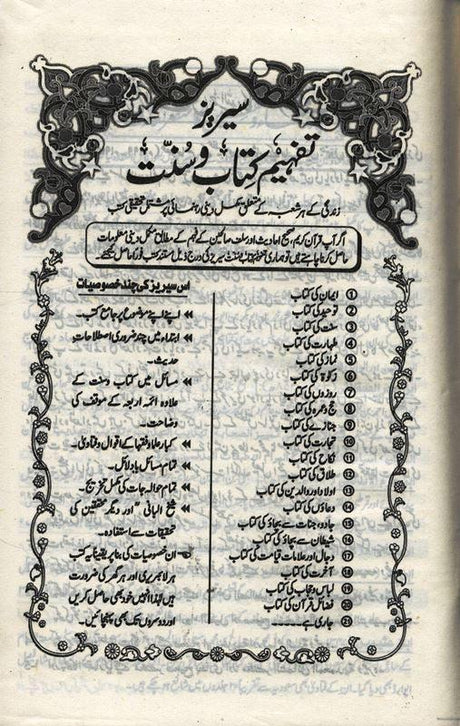 سیریز
تفہیم کتاب و سنت
زندگی کے ہر شعبہ کے متعلق مکمل دینی رہنمائی پر مشتمل تحقیقی کتب
اگر آپ قرآن کریم، صحیح احادیث اور سلف صالحین کے فہم کے مطابق مکمل دینی معلومات
حاصل کرنا چاہتے ہیں تو ہماری تفہیم کتاب وسنت سیریز کی درج ذیل مستند کتب فوراً حاصل کیجئے
① ایمان کی کتاب
② توحید کی کتاب
③ سنت کی کتاب
④ طہارت کی کتاب
⑤ نماز کی کتاب
⑥ زکوٰۃ کی کتاب
⑦ روزوں کی کتاب
⑧ حج وعمرہ کی کتاب
⑨ جنازے کی کتاب
⑩ تجارت کی کتاب
⑪ نکاح کی کتاب
⑫ طلاق کی کتاب
⑬ اولاد اور والدین کی کتاب
⑭ دعاؤں کی کتاب
⑮ جادو، جنات سے بچاؤ کی کتاب
⑯ شیطان سے بچاؤ کی کتاب
⑰ دجال اور علامات قیامت کی کتاب
⑱ آخرت کی کتاب
⑲ لباس وحجاب کی کتاب
⑳ فضائل قرآن کی کتاب
㉑ جاری ہے.........
اس سیریز کی چند خصوصیات
اپنے اپنے موضوع پر جامع کتب۔
ابتداء میں چند ضروری اصطلاحات
حدیث۔
مسائل میں کتاب وسنت کے
علاوہ ائمہ اربعہ کے موقف کی
وضاحت۔
کبار علماء وفقہا کے اقوال وفتاویٰ۔
تمام مسائل بادلائل۔
تمام حوالہ جات کی مکمل تخریج۔
شیخ البانیؒ اور دیگر محققین کی
تحقیقات سے استفادہ۔
ان خصوصیات کی بنا پر یقیناً یہ کتب
ہر لائبریری اور ہر گھر کی ضرورت
ہیں لہٰذا انہیں خود بھی حاصل کریں
اور دوسروں تک بھی پہنچائیں۔